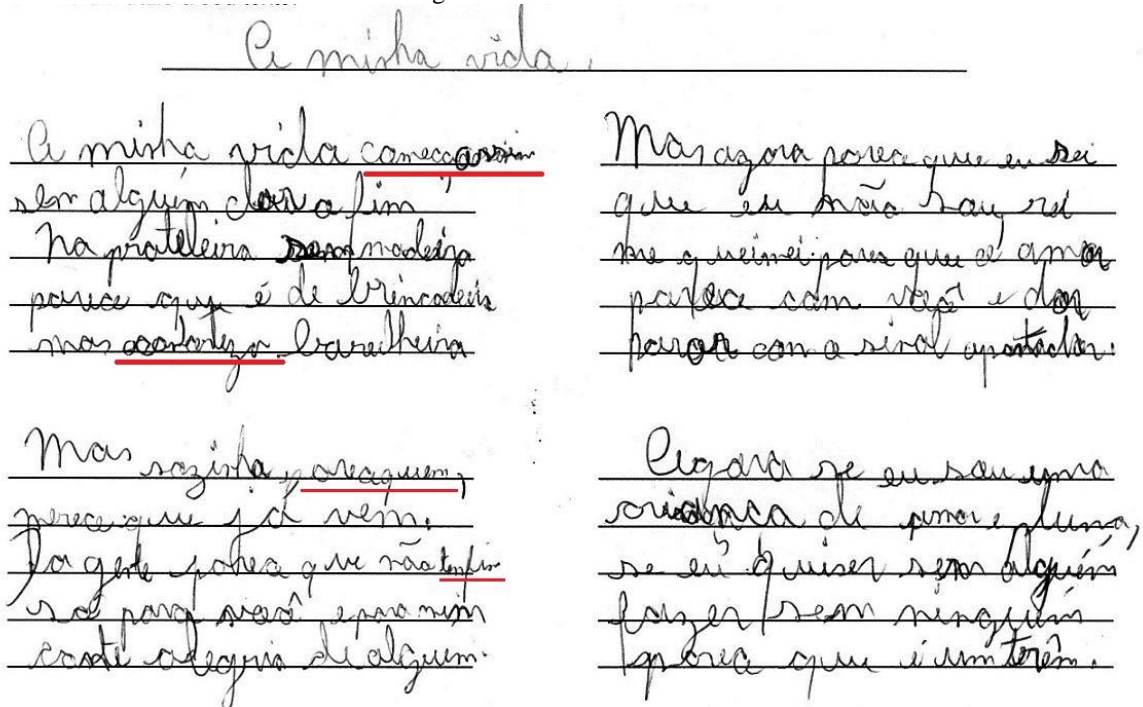 A minha vida.
A minha vida começaassim
sem alguém dar o fim
Na prateleira sem madeira
parece que é de brincadeira
mas
Mas sozinha,
perece que já vem.
Da gente parea que não temfim
só para você e para mim
conte alegria de alguem.
Mas agora parea que eu sei
que eu não sou rei
me queimei parea que o amor
parece com você e dor
com o sinal apontador.
Agora se eu sou uma
criança de amor e pluma,
se eu quiser sem alguém
fazer sem ninguém
parea que é um terêm.